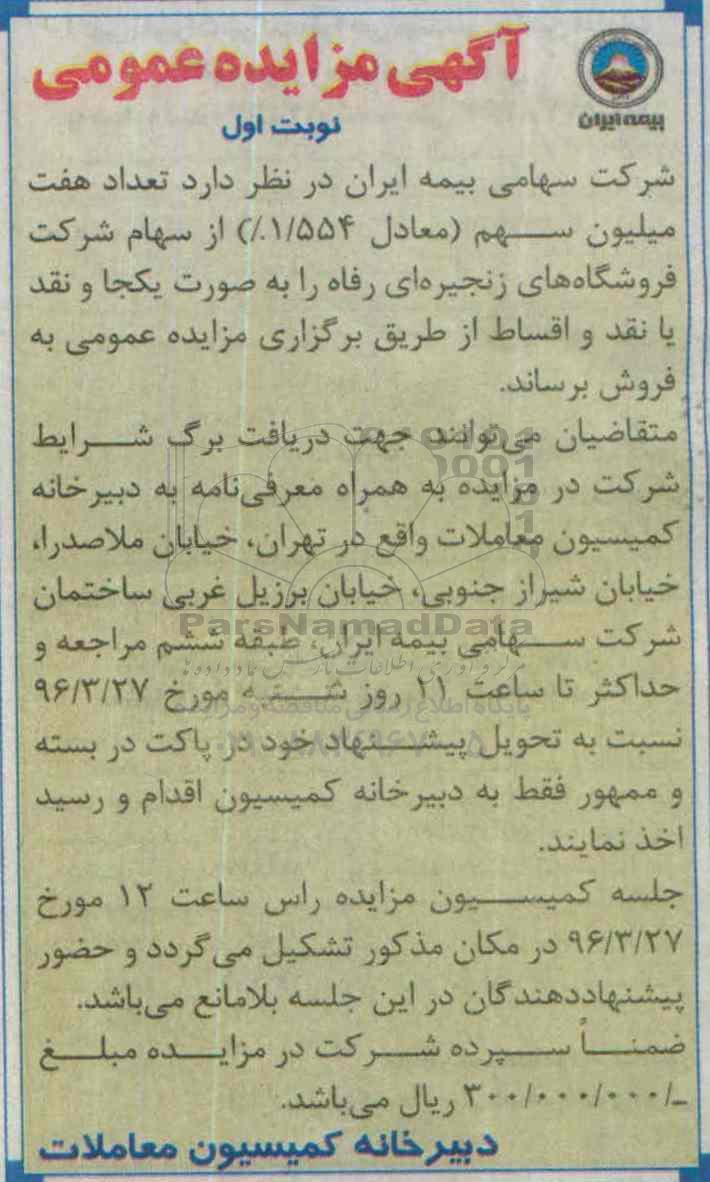 آگهی مزایده عمومی
بیمه ایران
نوبت اول
شرکت سهامی بیمه ایران در نظر دارد تعداد هفت
میلیون سهم (معادل ۱/۵۵۴٪) از سهام شرکت
فروشگاه‌های زنجیره‌ای رفاه را به صورت یکجا و نقد
یا نقد و اقساط از طریق برگزاری مزایده عمومی به
فروش برساند.
متقاضیان می‌توانند جهت دریافت برگ شرایط
شرکت در مزایده به همراه معرفی‌نامه به دبیرخانه
کمیسیون معاملات واقع در تهران، خیابان ملاصدرا،
خیابان شیراز جنوبی، خیابان برزیل غربی ساختمان
ParsNamadData
شرکت سهامی بیمه ایران، طبقه ششم مراجعه و
حداکثر تا ساعت ۱۱ روز شنبه مورخ ۹۶/۳/۲۷
پایگاه اطلاع رسانی مناقصه و مزایده
نسبت به تحویل پیشنهاد خود در پاکت در بسته
و ممهور فقط به دبیرخانه کمیسیون اقدام و رسید
اخذ نمایند.
جلسه کمیسیون مزایده راس ساعت ۱۲ مورخ
۹۶/۳/۲۷ در مکان مذکور تشکیل می‌گردد و حضور
پیشنهاددهندگان در این جلسه بلامانع می‌باشد.
ضمناً سپرده شرکت در مزایده مبلغ
۳۰۰/۰۰۰/۰۰۰/ـ ریال می‌باشد.
دبیرخانه کمیسیون معاملات